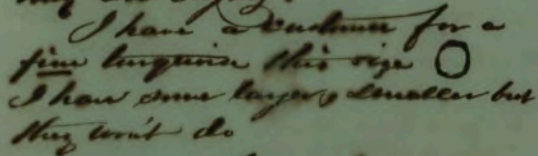 I have a customer for a
fine turquoise this size
I have some larger & smaller but
they won't do